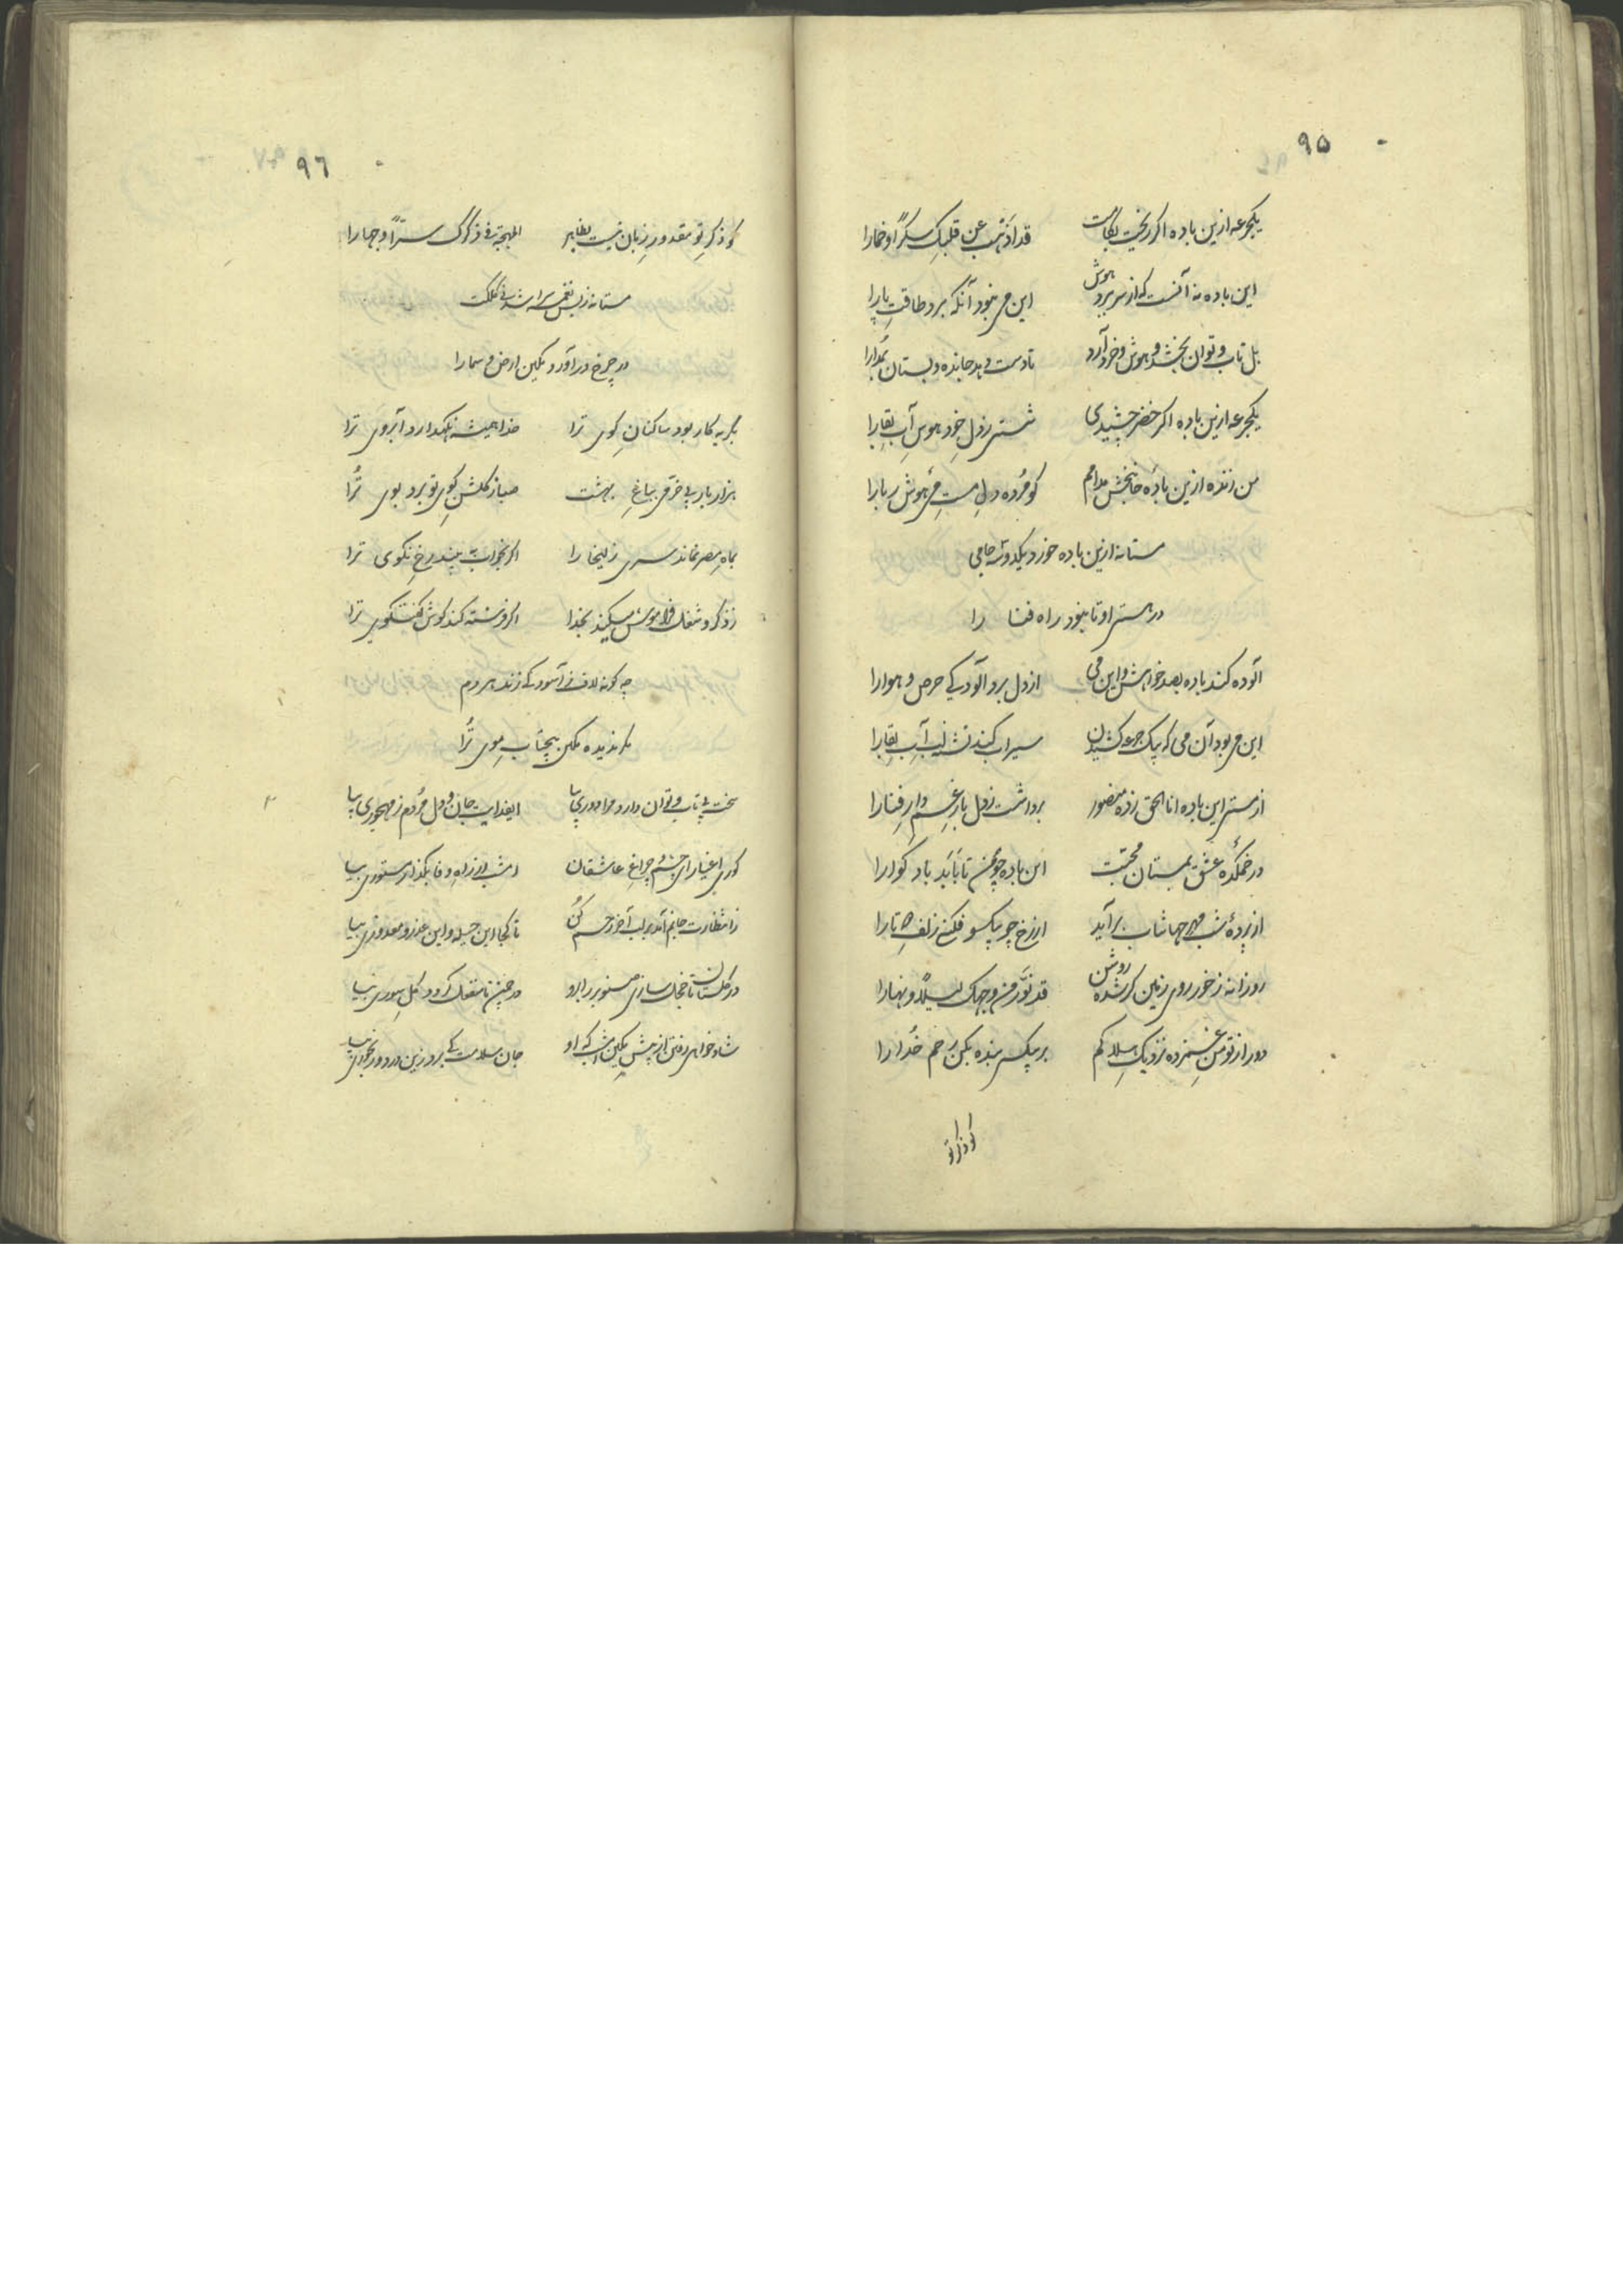 ٩٥
یکجرعه ازین باده اکر ریخت بکامت قد اذهب عن قلبک سکرًا و خمارا
این باده نه آنست که از سر ببرد هوش این می نبود آنکه برد طاقت پا را
بل تاب و توان بخشد و هوش و خرد آرد تا دست دهد جا بده و بستان
یکجرعه ازین باده اکر خضر چشیدی شستی ز دل خود هوس آب بقا را
من زنده ازین باده جانبخش مدامم کو مرده دل مست می هوش ربا را
مستانه ازین باده خورد یکدوسه جامی
در مستی او تا بنود راه فنا را
آلوده کند باده بصد خواهش و این می از دل برد آلودکی حرص و هوا را
این می بود آن می که بیک جرعه کشیدن سیراب کند تشنه لب آب بقا را
از مستی این باده انا الحق زده منصور برداشت ز دل بار غم دار فنا را
در خمکده عشق بمستان محبت این باده چو من تا بابد باد کوارا
از پرده شب مهر جهانتاب برآید از رخ چو بیکسو فکنی زلف دوتا را
روزانه ز خور روی زمین کر شده روشن قد نور من وجهک لیلًا و نهارا
دور از تو من غمزده نزدیک هلاکم بر بیکسی بنده بکن رحم خدا را
کو ذکر تو
٩٦
کو ذکر تو مقدور زبان نیست بظاهر المهجة فی ذکرک سرًا و جهارا
مستانه زد
در چرخ درآورد مکین ارض و سما را
بکریه کار بود ساکنان کوی ترا خدا همیشه نکهدارد آبروی ترا
هزار بار به خرمی بباغ بهشت صبا ز کلشن کوی تو برد بوی ترا
بماه مصر نماند سری زلیخا را اکر بخواب ببیند رخ نکوی ترا
ز ذکر و شغل فراموش میکند بخدا اکر فرشته کند کوش کفتکوی ترا
چه کونه لاف ز آسودکی زند هر دم
ندیده مکین پیچتاب موی ترا
سخت بی تاب و توان دارد مرا دوری بیا ایفدایت جان و دل مردم ز مهجوری بیا
کوری اغیار ای چشم و چراغ عاشقان امشب از راه وفا بکذار مستوری بیا
ز انتظارت جانم آمد بر لب آخر رحم کن تا کجا این حیله و این عذر و معذوری بیا
در کلستان تا خجل سازی صنوبر را برو در چمن تا منفعل کردد کل سوری بیا
شاد خواهی رفتن از پیش مکین امشب که او جان سلامت کی برد زین درد و رنجوری بیا